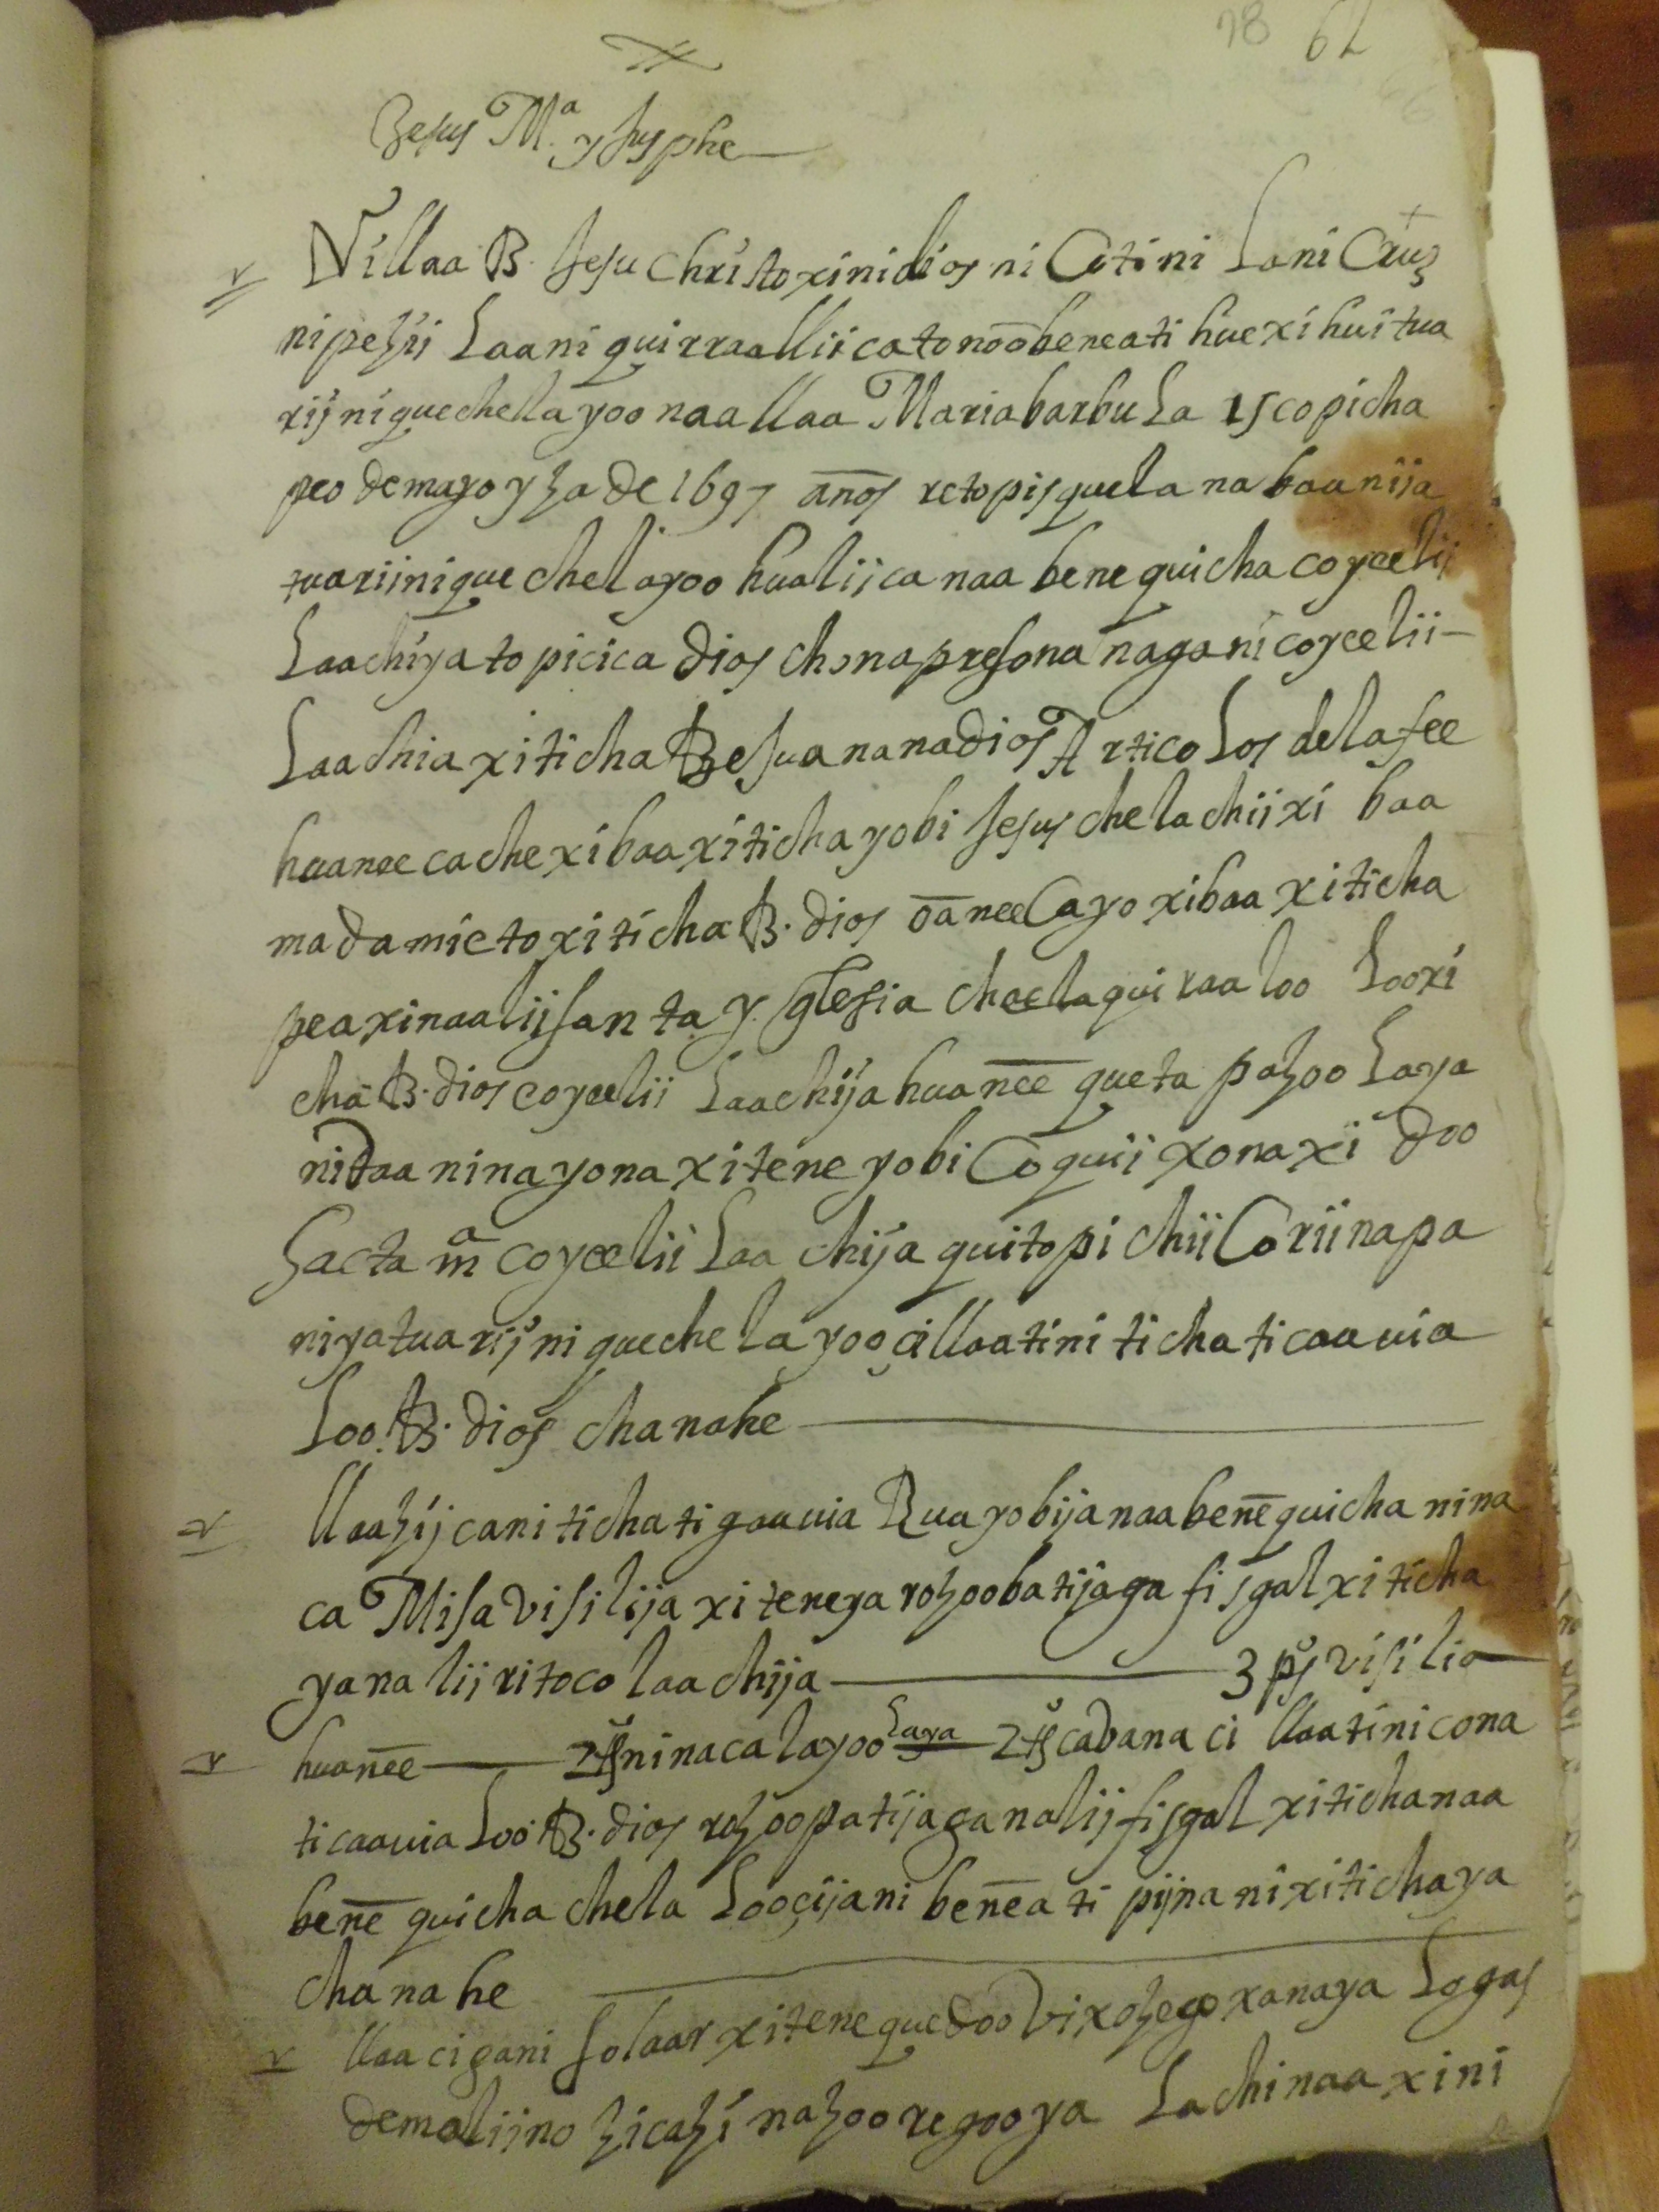 78 62
Jesus Mª y Jusphe
Nillaa B. Jesu christo xinidios ni Cotini Lani Cruz
nipezii Laani quirraallii cato noō beneati huexihuitua
riij ni quechelayoo naa llaa Maria barbula 15 copicha
peo de mayo yza de 1697 años retopisquela na baanija
tuariini quechelayoo hualiica naa bene quicha coyeelii
Laachiya topicica dios chonapresona nagani coyeelii
Laachia xiticha Bejuanana dios Articolos de la fee
huanee cachexibaa xiticha yobi Jesus chela chiixi baa
madamieto xiticha B. dios oānee Cayo xibaa xiticha
peaxinaalii santa yglesia cheela quiraaloo Looxi
cha B. dios coyeelii Laachija huaneē queta pazoo Laya
nidaa ninayona xitene yobi Coquii xonaxi doo
Sacta mª coyeelii Laachija quitopi chii Corii napa
niyatuariij ni quechelayoo cillaatini ticha ticaauia
Loo B. dios chanahe
llaazij cani ticha tigaauia Rua yobija naa benē quicha nina
ca Misa visilija xiteneya rozoobatijaga fisgal xiticha
yanalii ritoco laachija 3 ps visilia
huaneē 2ts ninaca layoo Laya 2ts cabana cillaatini cona
ticaauia Loo B. dios rozoopatijaga nalij fisgal xiticha naa
benē quicha chela Loocijani benēati pijna ni xitichaya
chanahe
llaacigani solaar xitene quedoo vixozego xanaya Logas
demaliino zicazi nazooregooya Lachinaa xini